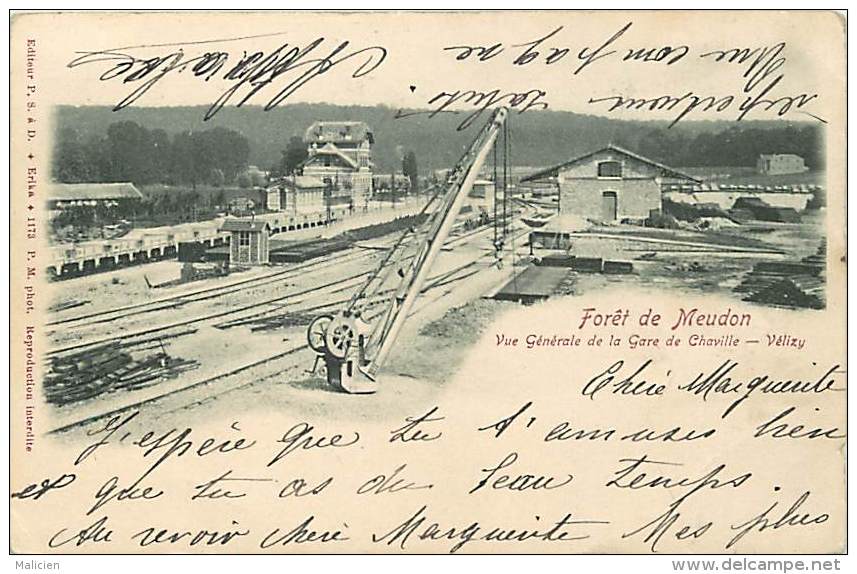 Forêt de Meudon
Vue Générale de la Gare de Chaville — Vélizy
Editeur P. S. à D. ✦ Erika ✦ 1173 P. M. phot. Reproduction interdite
Chère Marguerite
J'espère que tu t'amuses bien
et que tu as du beau temps
Au revoir chère Marguerite Mes plus
respectueux saluts
Une compagne
Malicien
http://www.delcampe.net